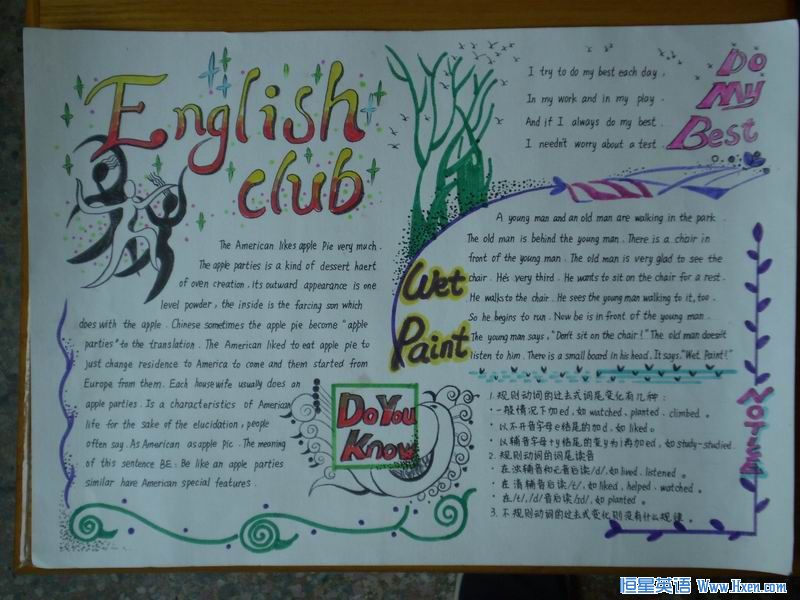 English
club
The American likes apple Pie very much.
The apple parties is a kind of dessert haert
of oven creation, its outward appearance is one
level powder, the inside is the farcing son which
does with the apple. Chinese sometimes the apple pie become "apple
parties" to the translation. The American liked to eat apple pie to
just change residence to America to come and them started from
Europe from them. Each housewife usually does an
apple parties. Is a characteristics of American
life for the sake of the elucidation, people
often say. As American as apple pic. The meaning
of this sentence BE: Be like an apple parties
similar have American special features.
Do You
Know
I try to do my best each day.
In my work and in my play.
And if I always do my best.
I needn't worry about a test.
Do
My
Best
Wet
Paint
A young man and an old man are walking in the park.
The old man is behind the young man. There is a chair in
front of the young man. The old man is very glad to see the
chair. He's very third. He wants to sit on the chair for a rest.
He walks to the chair. He sees the young man walking to it, too.
So he begins to run. Now be is in front of the young man.
The young man says, "Don't sit on the chair!" The old man doesn't
listen to him. There is a small board in his head. It says. "Wet. Paint!"
1. 规则动词的过去式词尾变化有几种:
· 一般情况下加ed, 如 watched、planted、climbed。
· 以不开音字母e结尾的加d, 如 liked。
· 以辅音字母+y结尾的变y为i再加ed, 如 study-studied.
2. 规则动词的词尾读音
· 在浊辅音和元音后读/d/, 如 lived、listened。
· 在清辅音后读/t/, 如 liked、helped、watched。
· 在/t/,/d/音后读/ɪd/, 如 planted。
3. 不规则动词的过去式变化则没有什么规律。
恒星英语 Www.Hxen.com